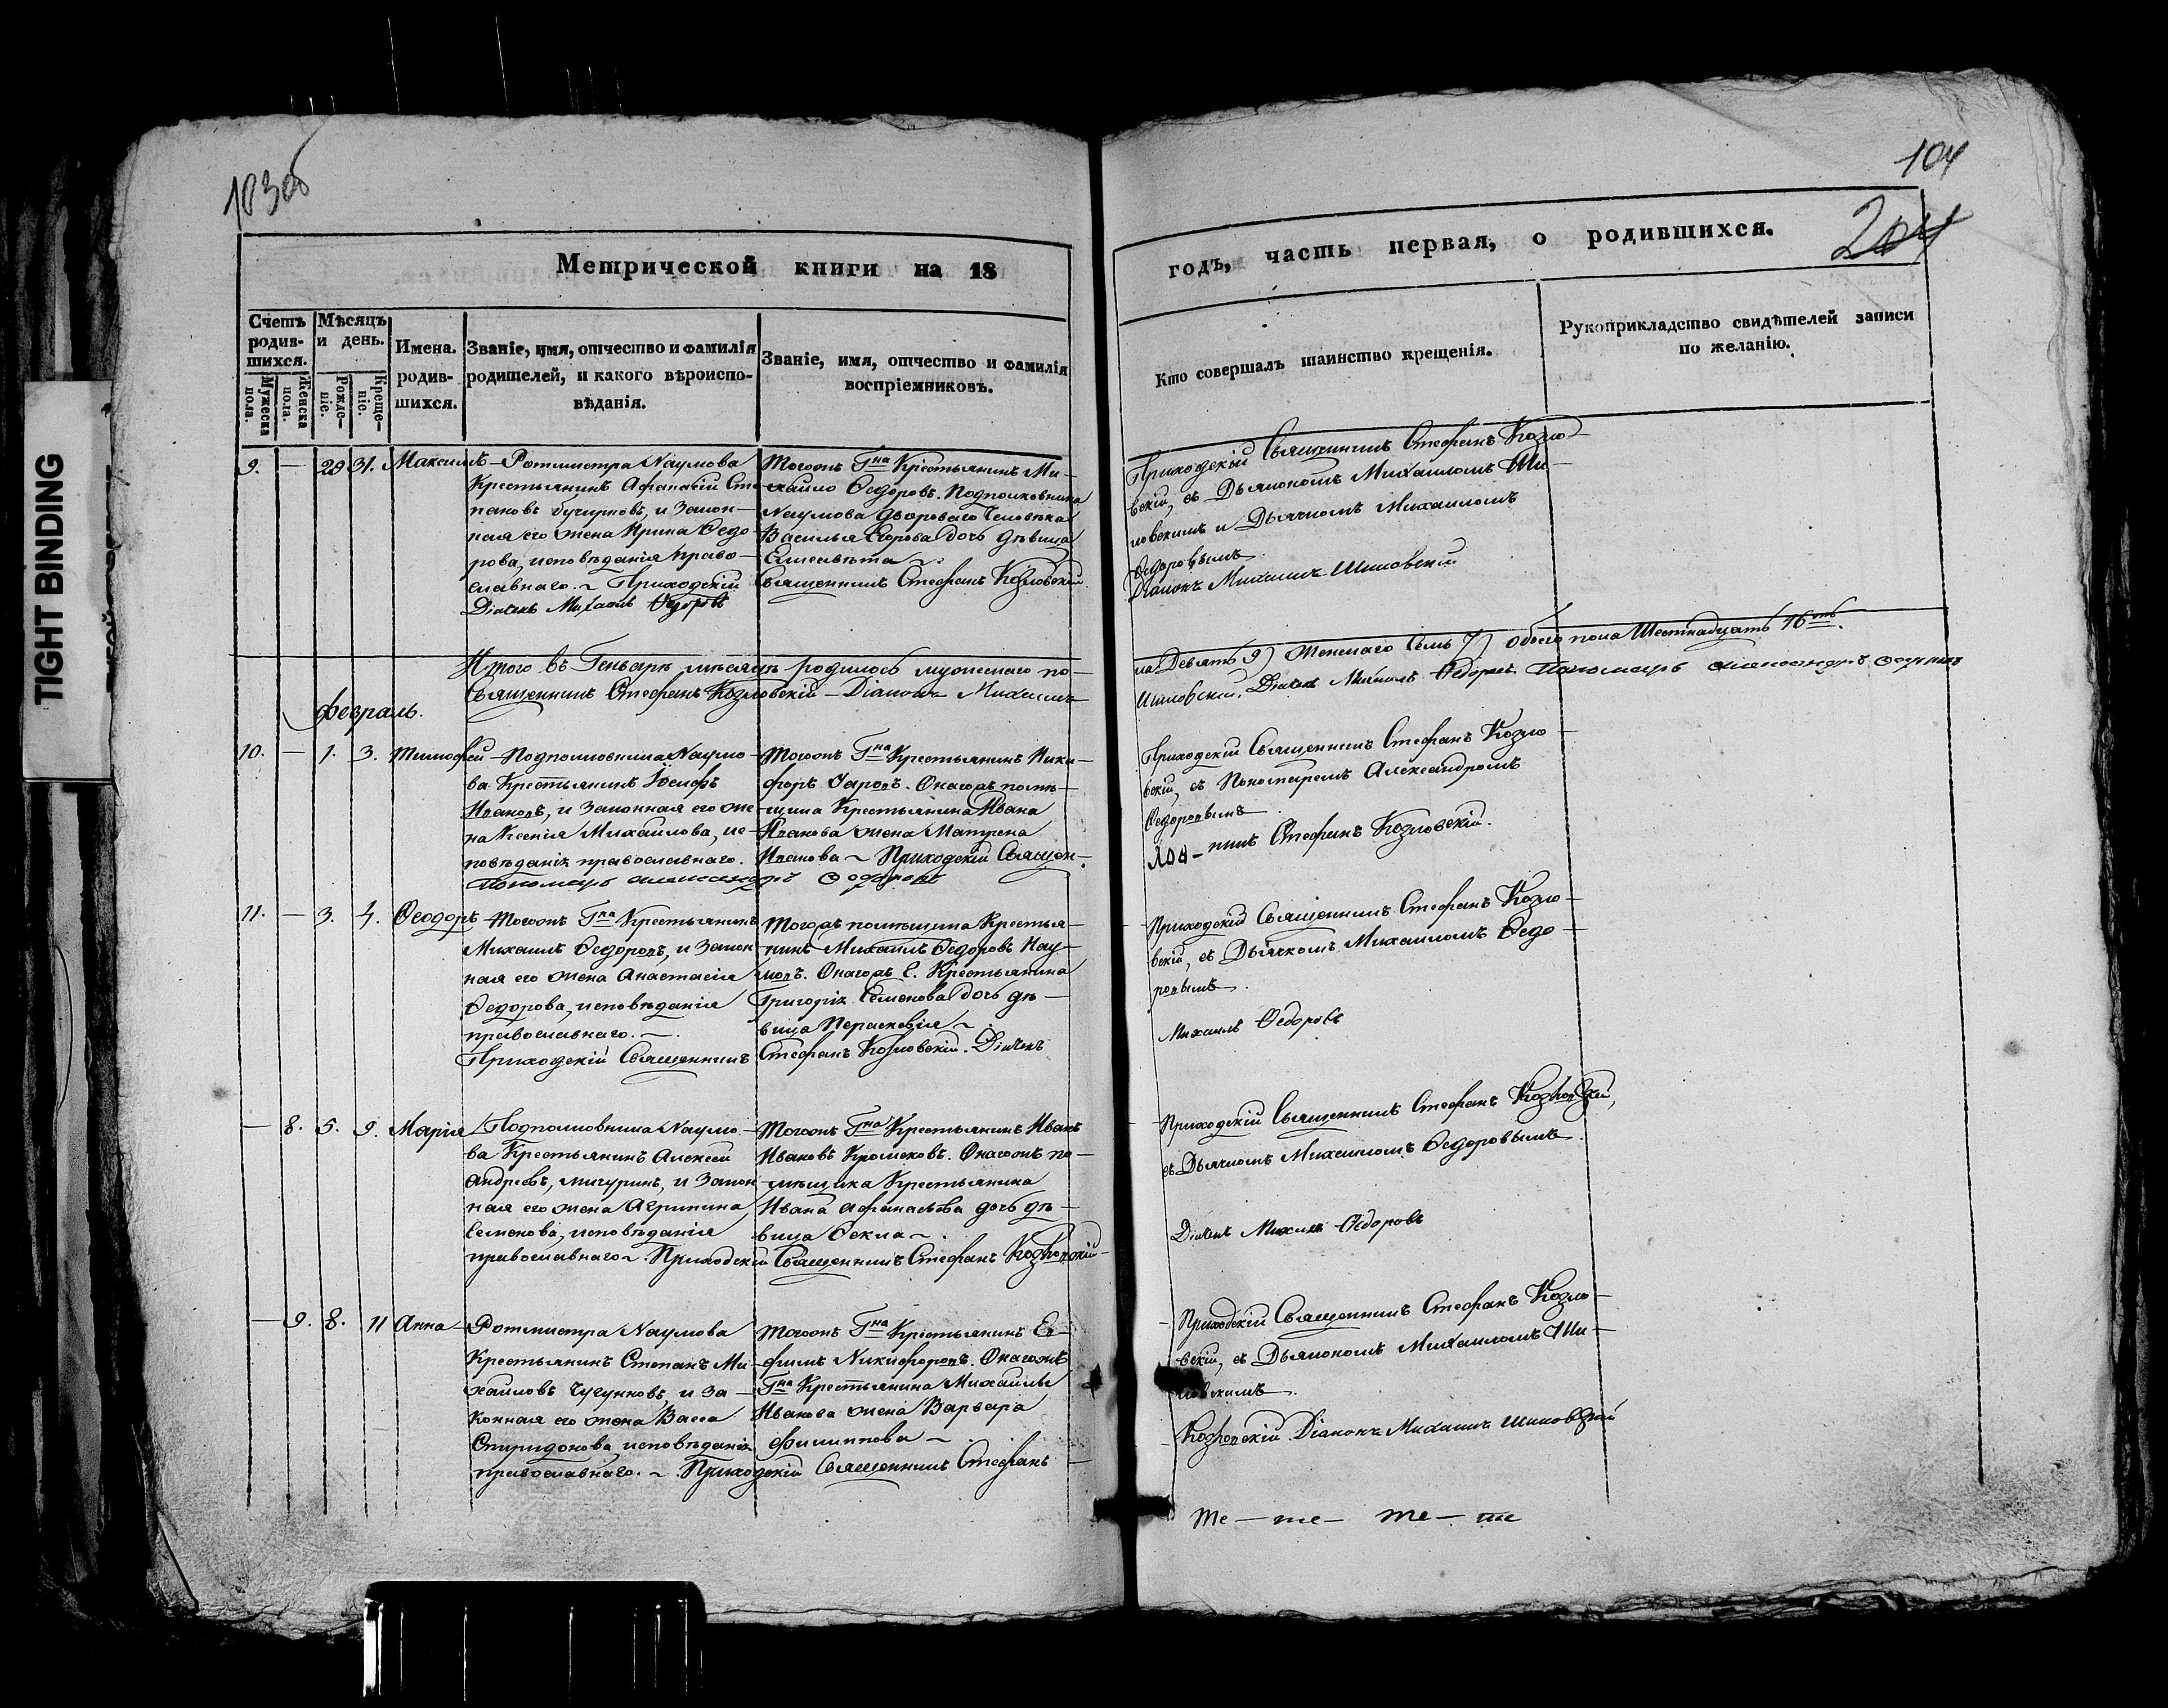 TIGHT BINDING
103об
104
204
Метрической книги на 18
годъ, часть первая, о родившихся.
Счетъ родив-шихся.
Мужеска пола.
Женска пола.
Мѣсяцъ и день.
Рожде-ніе.
Креще-ніе.
Имена. родив-шихся.
Званіе, имя, отчество и фамилія
родителей, и какого вѣроиспо-
вѣданія.
Званіе, имя, отчество и фамилія
воспріемниковъ.
Кто совершалъ таинство крещенія.
Рукоприкладство свидѣтелей записи
по желанію.
9. — 29 31. Максимъ
Ротмистра Наумова
Крестьянинъ Афанасій Сте-
пановъ, и закон-
ная его жена Ирина Федо-
рова, исповѣданія право-
славнаго. ~ Приходскій
Діачекъ Михаилъ Федоровъ
Тогожъ Гна Крестьянинъ Ми-
хайло Федоровъ. Подполковника
Наумова двороваго человѣка
Василья Егорова дочь дѣвица
Елисавета ~.
Священникъ Стефанъ Козловскій
Приходскій Священникъ Стефанъ Козло-
вскій, съ Дьякономъ Михаиломъ Ши-
ловскимъ и Дьячкомъ Михаиломъ
Федоровымъ.
Діаконъ Михаилъ Шиловскій
Итого въ Генварѣ мѣсяцѣ родилось мужескаго по-
ла Девять 9) Женскаго Семь 7) обоего пола Шестнадцать 16ть.
Священникъ Стефанъ Козловскій — Діаконъ Михаилъ
Шиловскій. Діачекъ Михаилъ Федоровъ Пономарь Александръ Федоровъ
Февраль.
10. — 1. 3. Тимофей
Подполковника Наумо-
ва Крестьянинъ Іосифъ
Ивановъ, и законная его же-
на Ксенія Михаилова, ис-
повѣданія православнаго.
Пономарь Александръ Федоровъ
Тогожъ Гна Крестьянинъ Ники-
форъ Уаровъ. Онагожъ помѣ-
щика Крестьянина Ивана
Иванова жена Матрена
Иванова ~ Приходскій Священ-
Приходскій Священникъ Стефанъ Козло-
вскій, съ Пономаремъ Александромъ
Федоровымъ
никъ Стефанъ Козловскій.
11. — 3. 4. Феодоръ
Тогожъ Гна Крестьянинъ
Михаилъ Федоровъ, и закон-
ная его жена Анастасія
Федорова, исповѣданія
православнаго. ~.
Приходскій Священникъ
Тогожъ помѣщика Крестья-
нинъ Михаилъ Федоровъ Нау-
мовъ. Онагожъ С. Крестьянина
Григорія Семенова дочь дѣ-
вица Параскевія ~.
Стефанъ Козловскій. Діачекъ
Приходскій Священникъ Стефанъ Козло-
вскій, съ Дьячкомъ Михаиломъ Федо-
ровымъ.
Михаилъ Федоровъ
— 8. 5. 9. Марія
Подполковника Наумо-
ва Крестьянинъ Алексей
Андреевъ, мичуринъ, и закон-
ная его жена Агрипина
Семенова, исповѣданія
православнаго ~. Приходскій
Тогожъ Гна Крестьянинъ Иванъ
Ивановъ. Онагожъ по-
мѣщика Крестьянина
Ивана Афанасьева дочь дѣ-
вица Фекла ~.
Священникъ Стефанъ Козловскій
Приходскій Священникъ Стефанъ Козловскій,
съ Дьячкомъ Михаиломъ Федоровымъ.
Діачекъ Михаилъ Федоровъ
— 9. 8. 11 Анна
Ротмистра Наумова
Крестьянинъ Степанъ Ми-
хайловъ Чугунковъ, и за-
конная его жена Васса
Спиридонова, исповѣданія
православнаго. ~. Приходскій
Тогожъ Гна Крестьянинъ Ев-
фимъ Никифоровъ. Онагожъ
Гна Крестьянина Михаилы
Иванова жена Варвара
Филиппова ~.
Священникъ Стефанъ
Приходскій Священникъ Стефанъ Козло-
вскій, съ Дьякономъ Михаиломъ Ши-
ловскимъ.
Козловскій Діаконъ Михаилъ Шиловскій